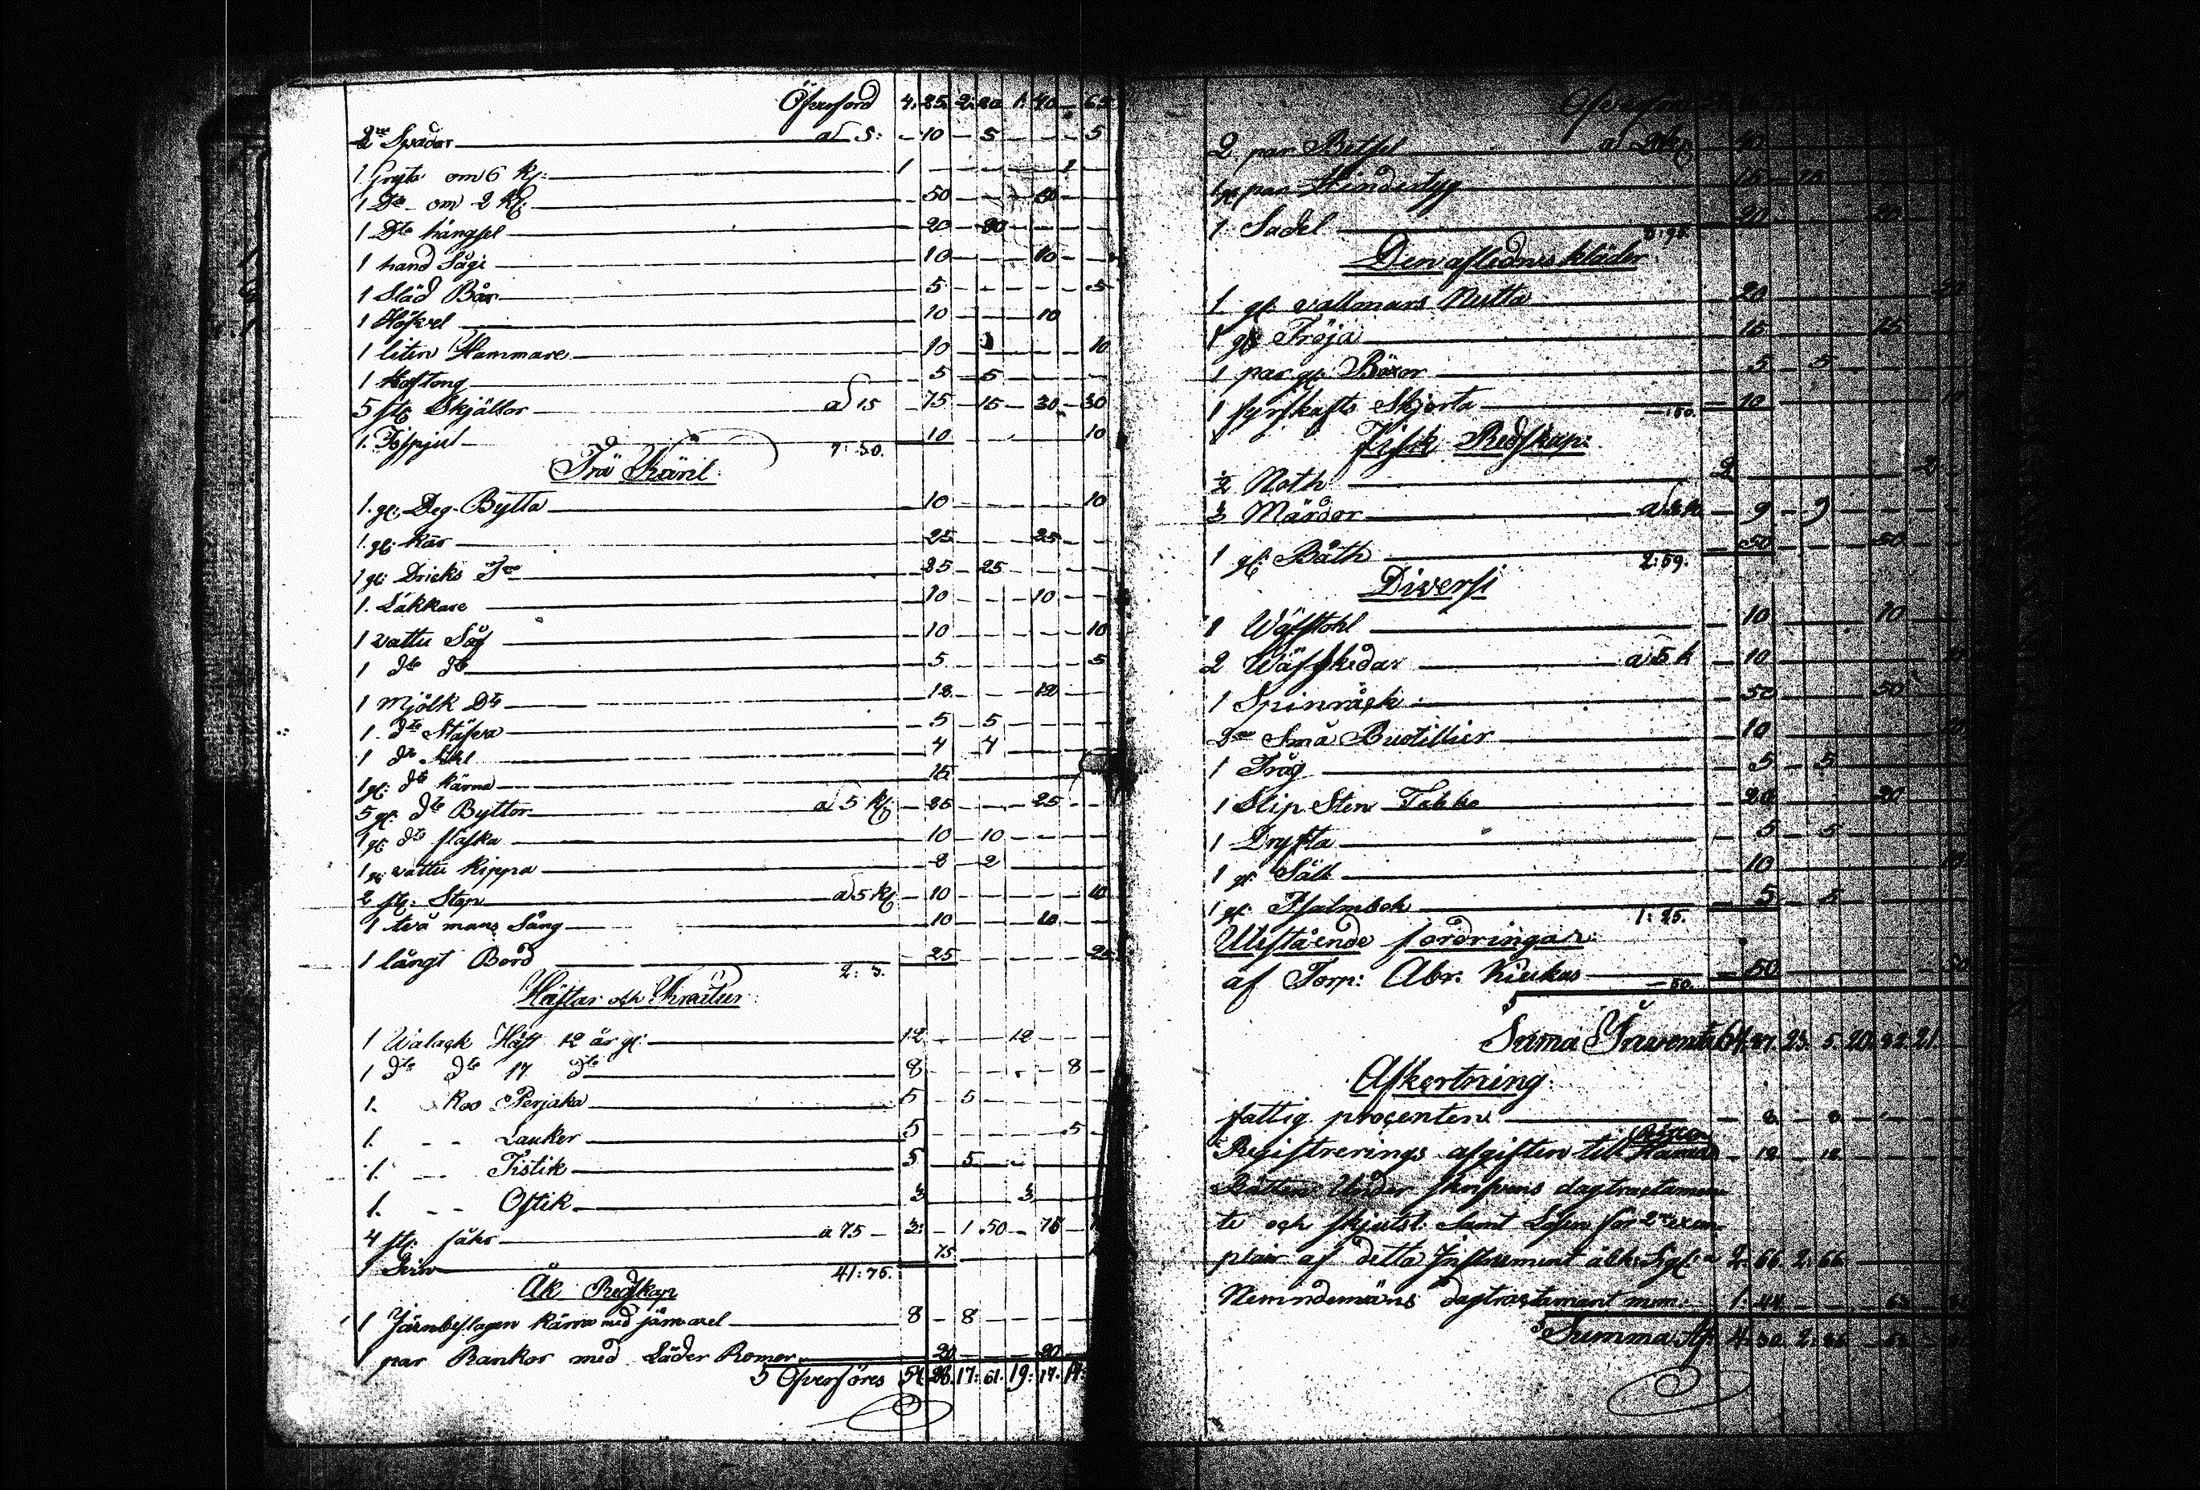 Öfverförd 4. 25. 2. 20 1. 40 – 65
2ne Spadar ad 5: – 10 – 5 – – – 5
1 Gryta om 6 K: 1 – – – – – 1 –
1 Dto om 2 K: – 50 – – – 50 – –
1 Dto hängsel – 20 – 20 – – – –
1 hand Sågi – 10 – – – 10 – –
1 Släd Bår – 5 – – – – – 5
1 Höfvel – 10 – – – 10
1 liten Hammare – 10 – – – – – 10
1 Hoftong – 5 – 5 – – – –
5 st: Skjällor ad 15 – 75 – 15 – 30 – 30
1. 7: 50. – 10 – – – – – 10
Trä Käril:
1. gl: Deg-Bytta – 10 – – – – – 10
1. gl: Kar – 25 – – – 25 – –
1 gl: Dricks – 25 – 25 – – – –
1. Läkkare – 10 – – – 10 – –
1 vattu Så – 10 – – – – – 10
1 dto dto – 5 – – – – – 5
1 Mjölk Dto – 12 – – – 12 – –
1. dto Stäfva – 5 – 5 – – – –
1 dto – 4 – 4 – – – –
1 gl: dto kärna – 15
5 gl: dto Byttor a 5 K: – 25 – – – 25 – –
1 gl: dto flaska – 10 – 10 – – – –
1 gl: vattu Kippa – 2 – 2 – – – –
2 st: Stop ad 5 K: – 10 – – – – – 10
1 två mans Säng – 10 – – – 10 – –
1 långt Bord 2: 3. – 25 – – – – – 25
Hästar och Kreatur:
1 Walack Häst 12 år gl: 12 – – – 12 – – –
1 dto dto 17 dto 8 – – – – – 8 –
1. Koo Perjaka 5 – 5 – – – – –
1. – – Lauker 5 – – – – – 5 –
1. – – Tistik 5 – 5 – – – – –
1. – – Ostik 3 – – – 3 – – –
4 st: fåhr a 75 – 3: – 1. 50 – 75 –
1 41: 75. – 75
Åk Redskap
1 Järnbeslagen kärra med järn axel 8 – 8 – – – –
1 par Rankor med Läder Remor – 20 – – – 20 –
S Öfverföres 54. 28. 17: 61. 19: 17. 17:
2 par Betsel 40
1 gl: par Hindertyg 15 – 15
1 Sadel 20 – – – 20
Den aflednes kläder:
1 gl: vallmars Nutta – 20
1 gl: Tröja 15 – – – 15
1 par gl: Böxor – 5 – 5
1 fyrskafts Skjorta – : 50. – 10
Fisk Redskap:
½ Noth 2 – – – – – 2 –
3 Märdor – 9 – 9 – – – –
1 gl: Båth 2: 59. – 50 – – – 50 –
Diversi
1 Wäfstohl – 10 – – – 10
2 Wäfskedar a 5 k – 10
1 Spinråck – 50 – – – 50
2ne Små Buotillier – 10
1 Tråg – 5 – 5
1 Slip Sten Takko – 20 – – – 20
1 Dryfta – 5 – 5
1 gl: Såll – 10
1 gl: Psalmbok 1: 25. – 5 – 5
Utestående fordringar:
af Torp: Abr. Kiukas – 50. – 50
Suma Inventarii 64. 87. 23. 5. 20. 82. 21.
Afkortning:
fattig procenten
Registrerings afgiften till – 12 – 12
Rätten Under dagtractamen
te och skjutsl: Samt Lösen för 2ne exem
plar af detta Instrument 2: 66. 2: 66.
Nemndemäns dagtractament 1: 44
Summa Af: